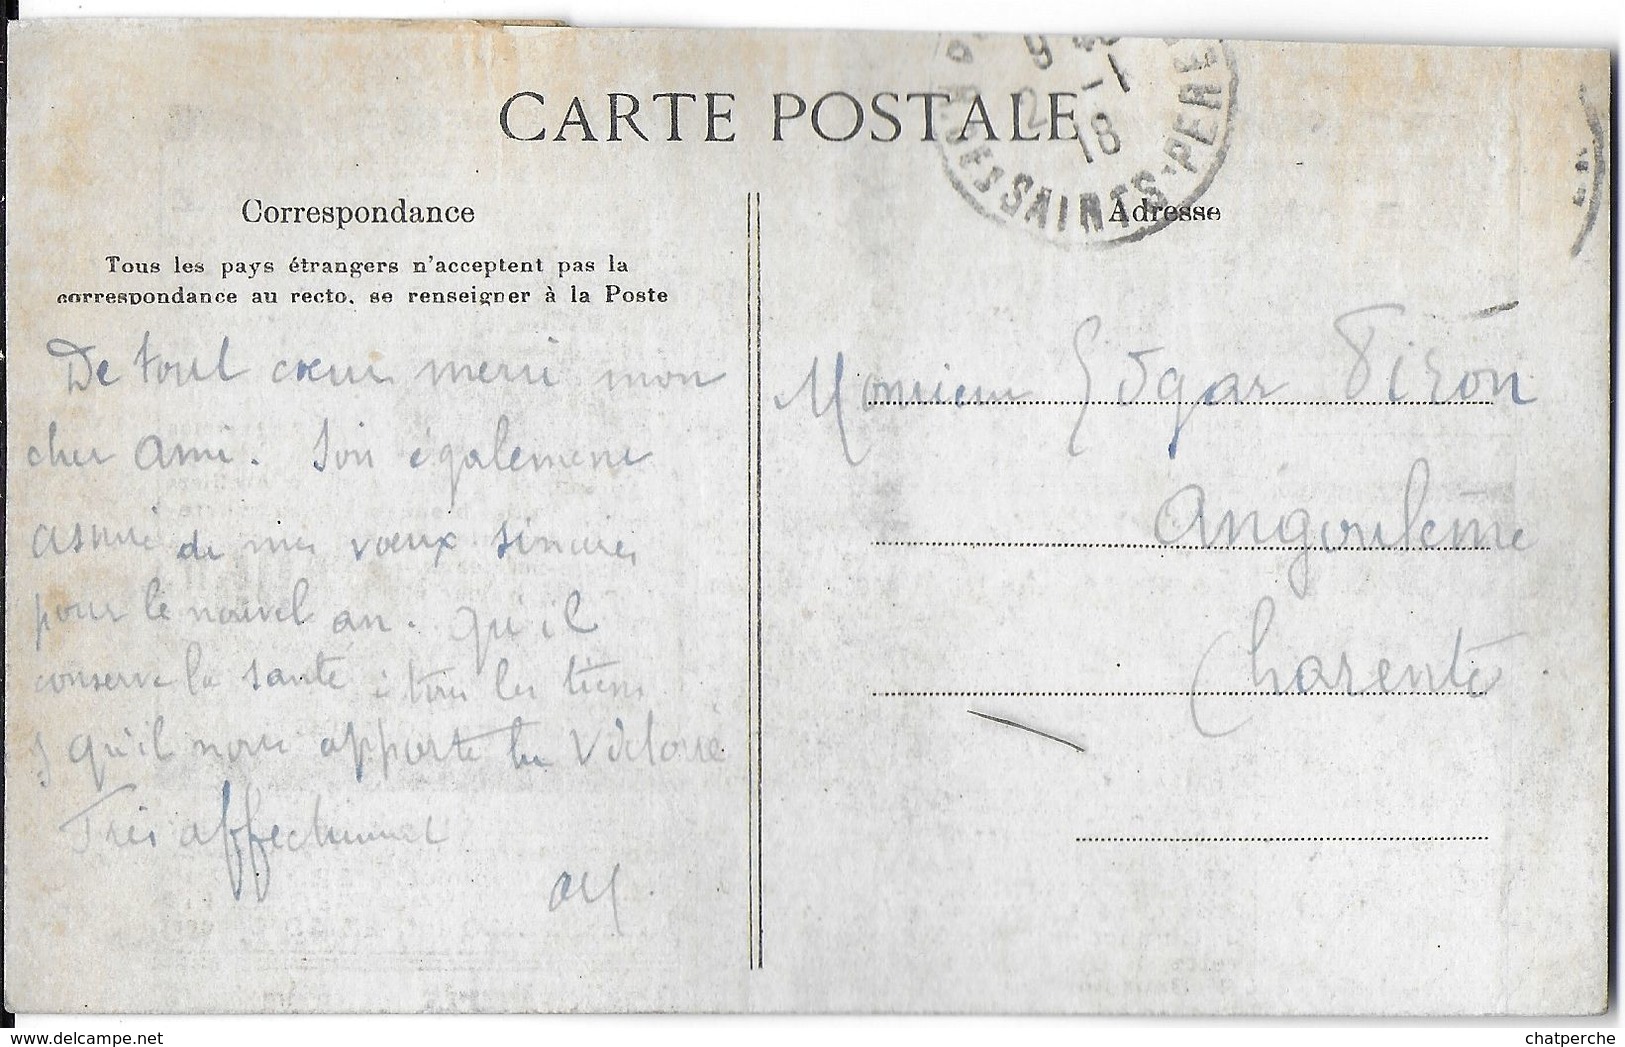 CARTE POSTALE
9
2 -1
18
R. DES SAINTS-PERE
Correspondance
Adresse
Tous les pays étrangers n'acceptent pas la
correspondance au recto, se renseigner à la Poste
De tout cœur merci mon
cher Ami. Sois également
assuré de mes vœux sincères
pour le nouvel an. Qu'il
conserve la santé à tous les tiens
& qu'il nous apporte la Victoire
Très affectionné
Monsieur Edgar Piron
Angoulême
Charente
chatperche